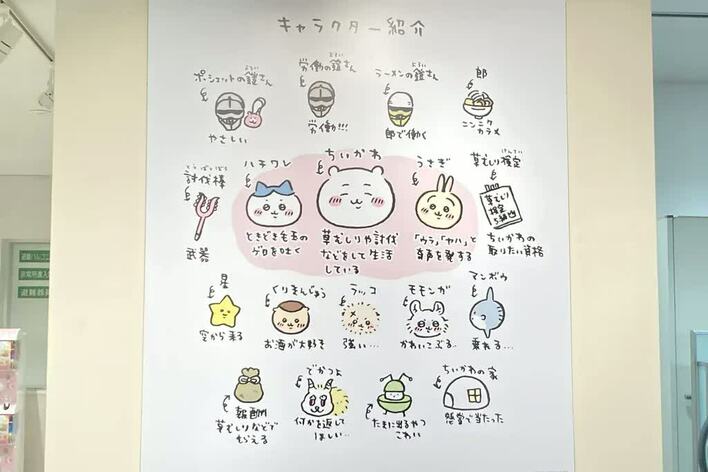 キャラクター紹介
ポシェットの鎧さん
よろい
やさしい
労働の鎧さん
よろい
労働!!!
ラーメンの鎧さん
よろい
郎で働く
郎
ニンニク
カラメ
とうばつぼう
討伐棒
武器
ハチワレ
ときどき毛玉の
ゲロを吐く
ちいかわ
草むしりや討伐
などをして生活
している
うさぎ
「ウラ」「ヤハ」と
奇声を発する
けんてい
草むしり検定
草むしり
検定
5級
ちいかわの
取りたい資格
星
空から来る
くりまんじゅう
お酒が大好き
ラッコ
強い…
モモンガ
かわいこぶる…
マンボウ
乗れる…
報酬
草むしりなどで
もらえる
でかつよ
何かを返して
ほしい…
たまに出るやつ
こわい
ちいかわの家
懸賞で当たった